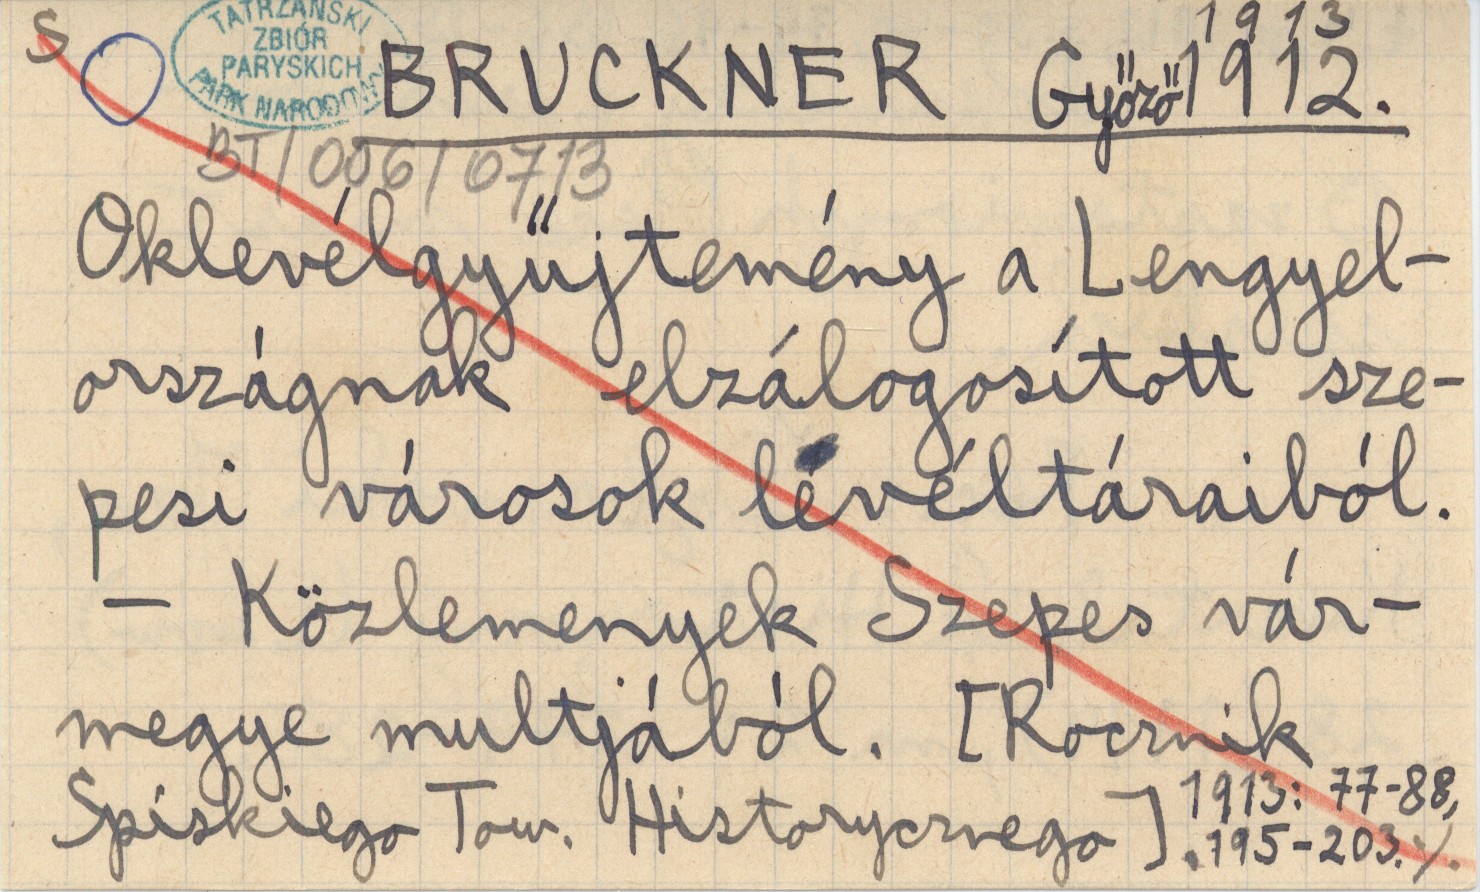 S
TATRZAŃSKI
ZBIÓR
PARYSKICH
PARK NARODOWY
1913
BRUCKNER Győző 1912.
BT/006/07/3
Oklevélgyűjtemény a Lengyel-
országnak elzálogosított sze-
pesi városok lévéltáraiból.
— Közlemenyek Szepes vár-
megye multjából. [Rocznik
Spiskiego Tow. Historycznego]. 1913: 77-88,
195-203. ⁒.